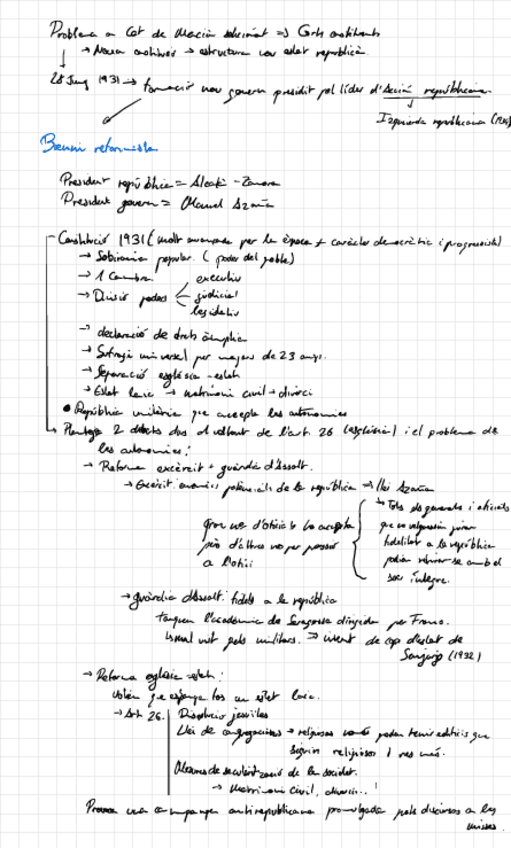 Problema a Cat de Macià solucionat => Corts constituents
→ Nova constitució → estructura nou estat republicà.
28 Juny 1931 → formació nou govern presidit pel líder d'Acción republicana.
Izquierda republicana (1934)
Bienni reformista
President república = Alcalá-Zamora
President govern = Manuel Azaña
Constitució 1931 (molt avançada per la època + caràcter democràtic i progressista)
→ Sobirania popular (poder del poble)
→ 1 Cambra
→ Divisió poders executiu
judicial
legislatiu
→ declaració de drets àmplia
→ Sufragi universal per majors de 23 anys.
→ Separació església-estat
→ Estat laic → matrimoni civil + divorci
• República unitària que accepta les autonomies
→ Plantejà 2 debats dos al voltant de l'art. 26 (església) i el problema de
les autonomies:
→ Reforma exèrcit + guàrdia d'Assalt.
→ Exèrcit enemic potencial de la república => llei Azaña
→ Tots els generals i oficials
que no volguessin jurar
fidelitat a la república
podien retirar-se amb el
sou íntegre.
gran nº d'oficials ho accepta
però d'altres no per passió
a l'ofici
→ guàrdia d'Assalt: fidels a la república
tanquen l'acadèmia de Saragossa dirigida per Franco.
mal vist pels militars. => intent de cop d'estat de
Sanjurjo (1932)
→ Reforma església-estat:
volen que espanya fos un estat laic.
→ Art 26. Dissolució jesuïtes
Llei de congregacions → religiosos només poden tenir edificis que
siguin religiosos i res més.
Mesures de secularització de la societat.
→ Matrimoni civil, divorci...
Provoca una campanya antirepublicana promulgada pels discursos a les
misses.